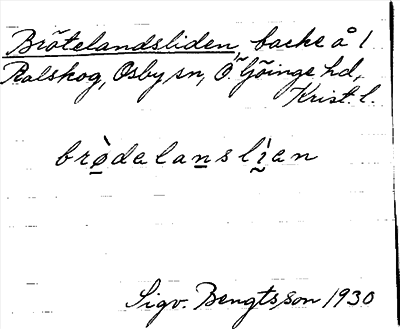 Brötelandsliden, backe å 1
Ralskog, Osby sn, Ö. Göinge hd,
Krist. l.
brò̱dalaṉslḭ̀an
Sigv. Bengtsson 1930